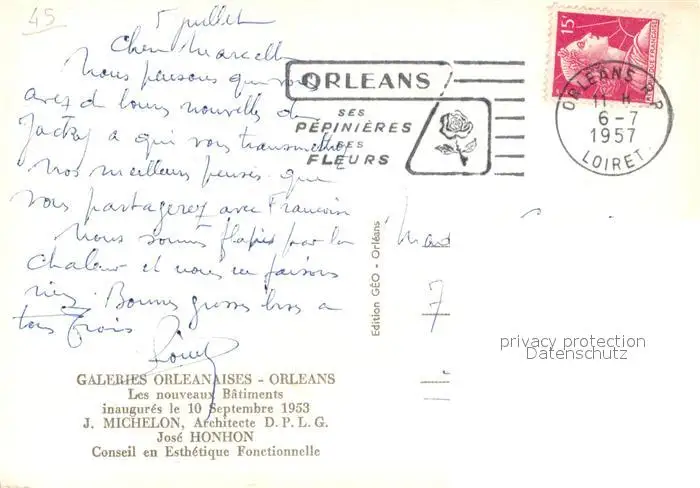 45
5 juillet
Chère Marcelle
Nous pensons que vous
avez de bonnes nouvelles de
Jacky à qui vous transmettez
nos meilleures pensées que
vous partagerez avec François
Nous sommes flapis par la
chaleur et nous ne faisons
rien. Bonnes grosses bises à
tous trois
GALERIES ORLEANAISES - ORLEANS
Les nouveaux Bâtiments
inaugurés le 10 Septembre 1953
J. MICHELON, Architecte D. P. L. G.
José HONHON
Conseil en Esthétique Fonctionnelle
Edition GÉO - Orléans
ORLEANS
SES
PÉPINIÈRES
SES
FLEURS
15F
ORLEANS R.P.
11 H
6-7
1957
LOIRET
7
privacy protection
Datenschutz